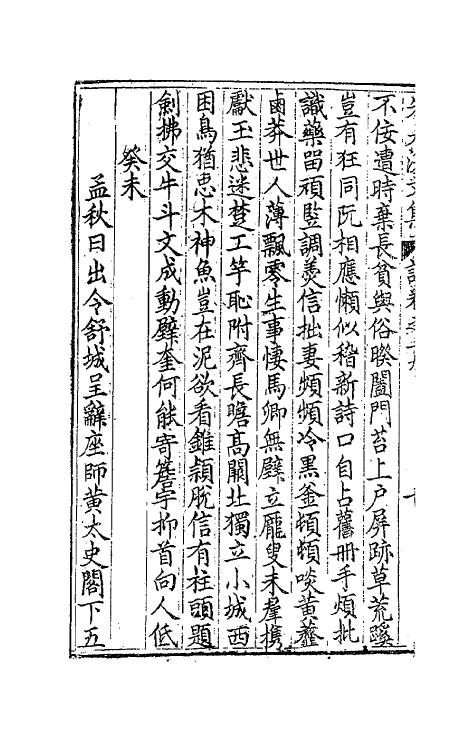 不佞遭時棄長貧與俗睽闔門苔上户屏跡草荒蹊
豈有狂同阮相應懶似嵇新詩口自占舊冊手頻批
識藥留頑豎調羹信拙妻頻頻冷黑釜頓頓啖黄虀
鹵莽世人薄飄零生事悽馬卿無壁立龎叟未羣携
獻玉悲迷楚工竽恥附齊長瞻高闕北獨立小城西
困鳥猶思木神魚豈在泥欲看錐頴脫信有柱頭題
劍拂交牛斗文成動璧奎何能寄簷宇抑首向人低
癸未
孟秋日出令舒城呈辭座師黄太史閣下五